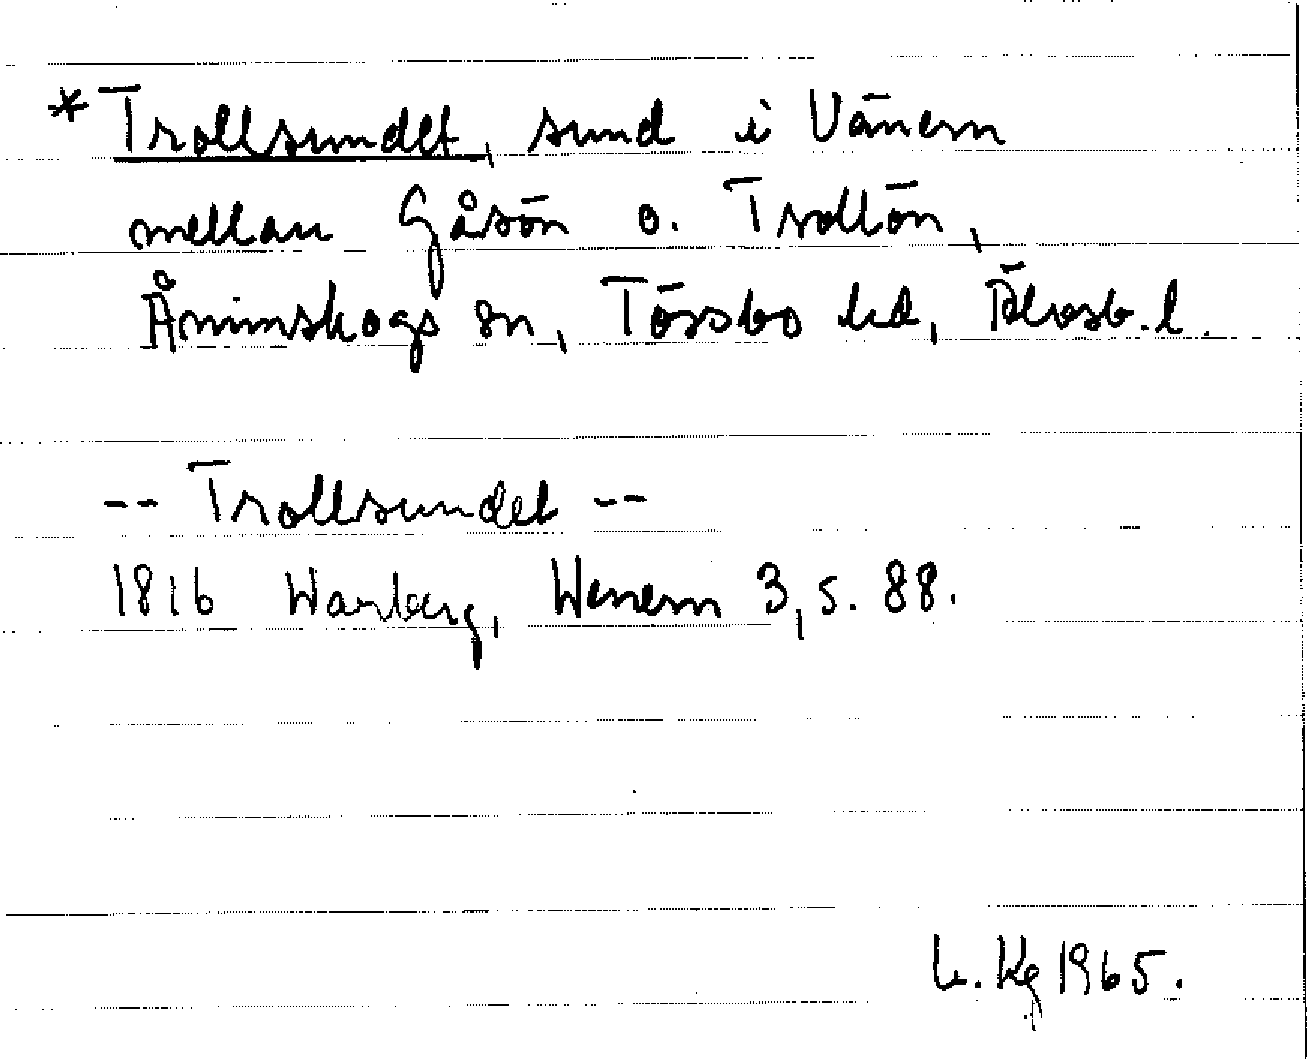 * Trollsundet, sund i Vänern
mellan Gåsön o. Trollön,
Ånimskogs sn, Tössbo hd, Älvsb. l.
-- Trollsundet --
1816 Warberg, Wenern 3, s. 88.
L. Kg 1965.